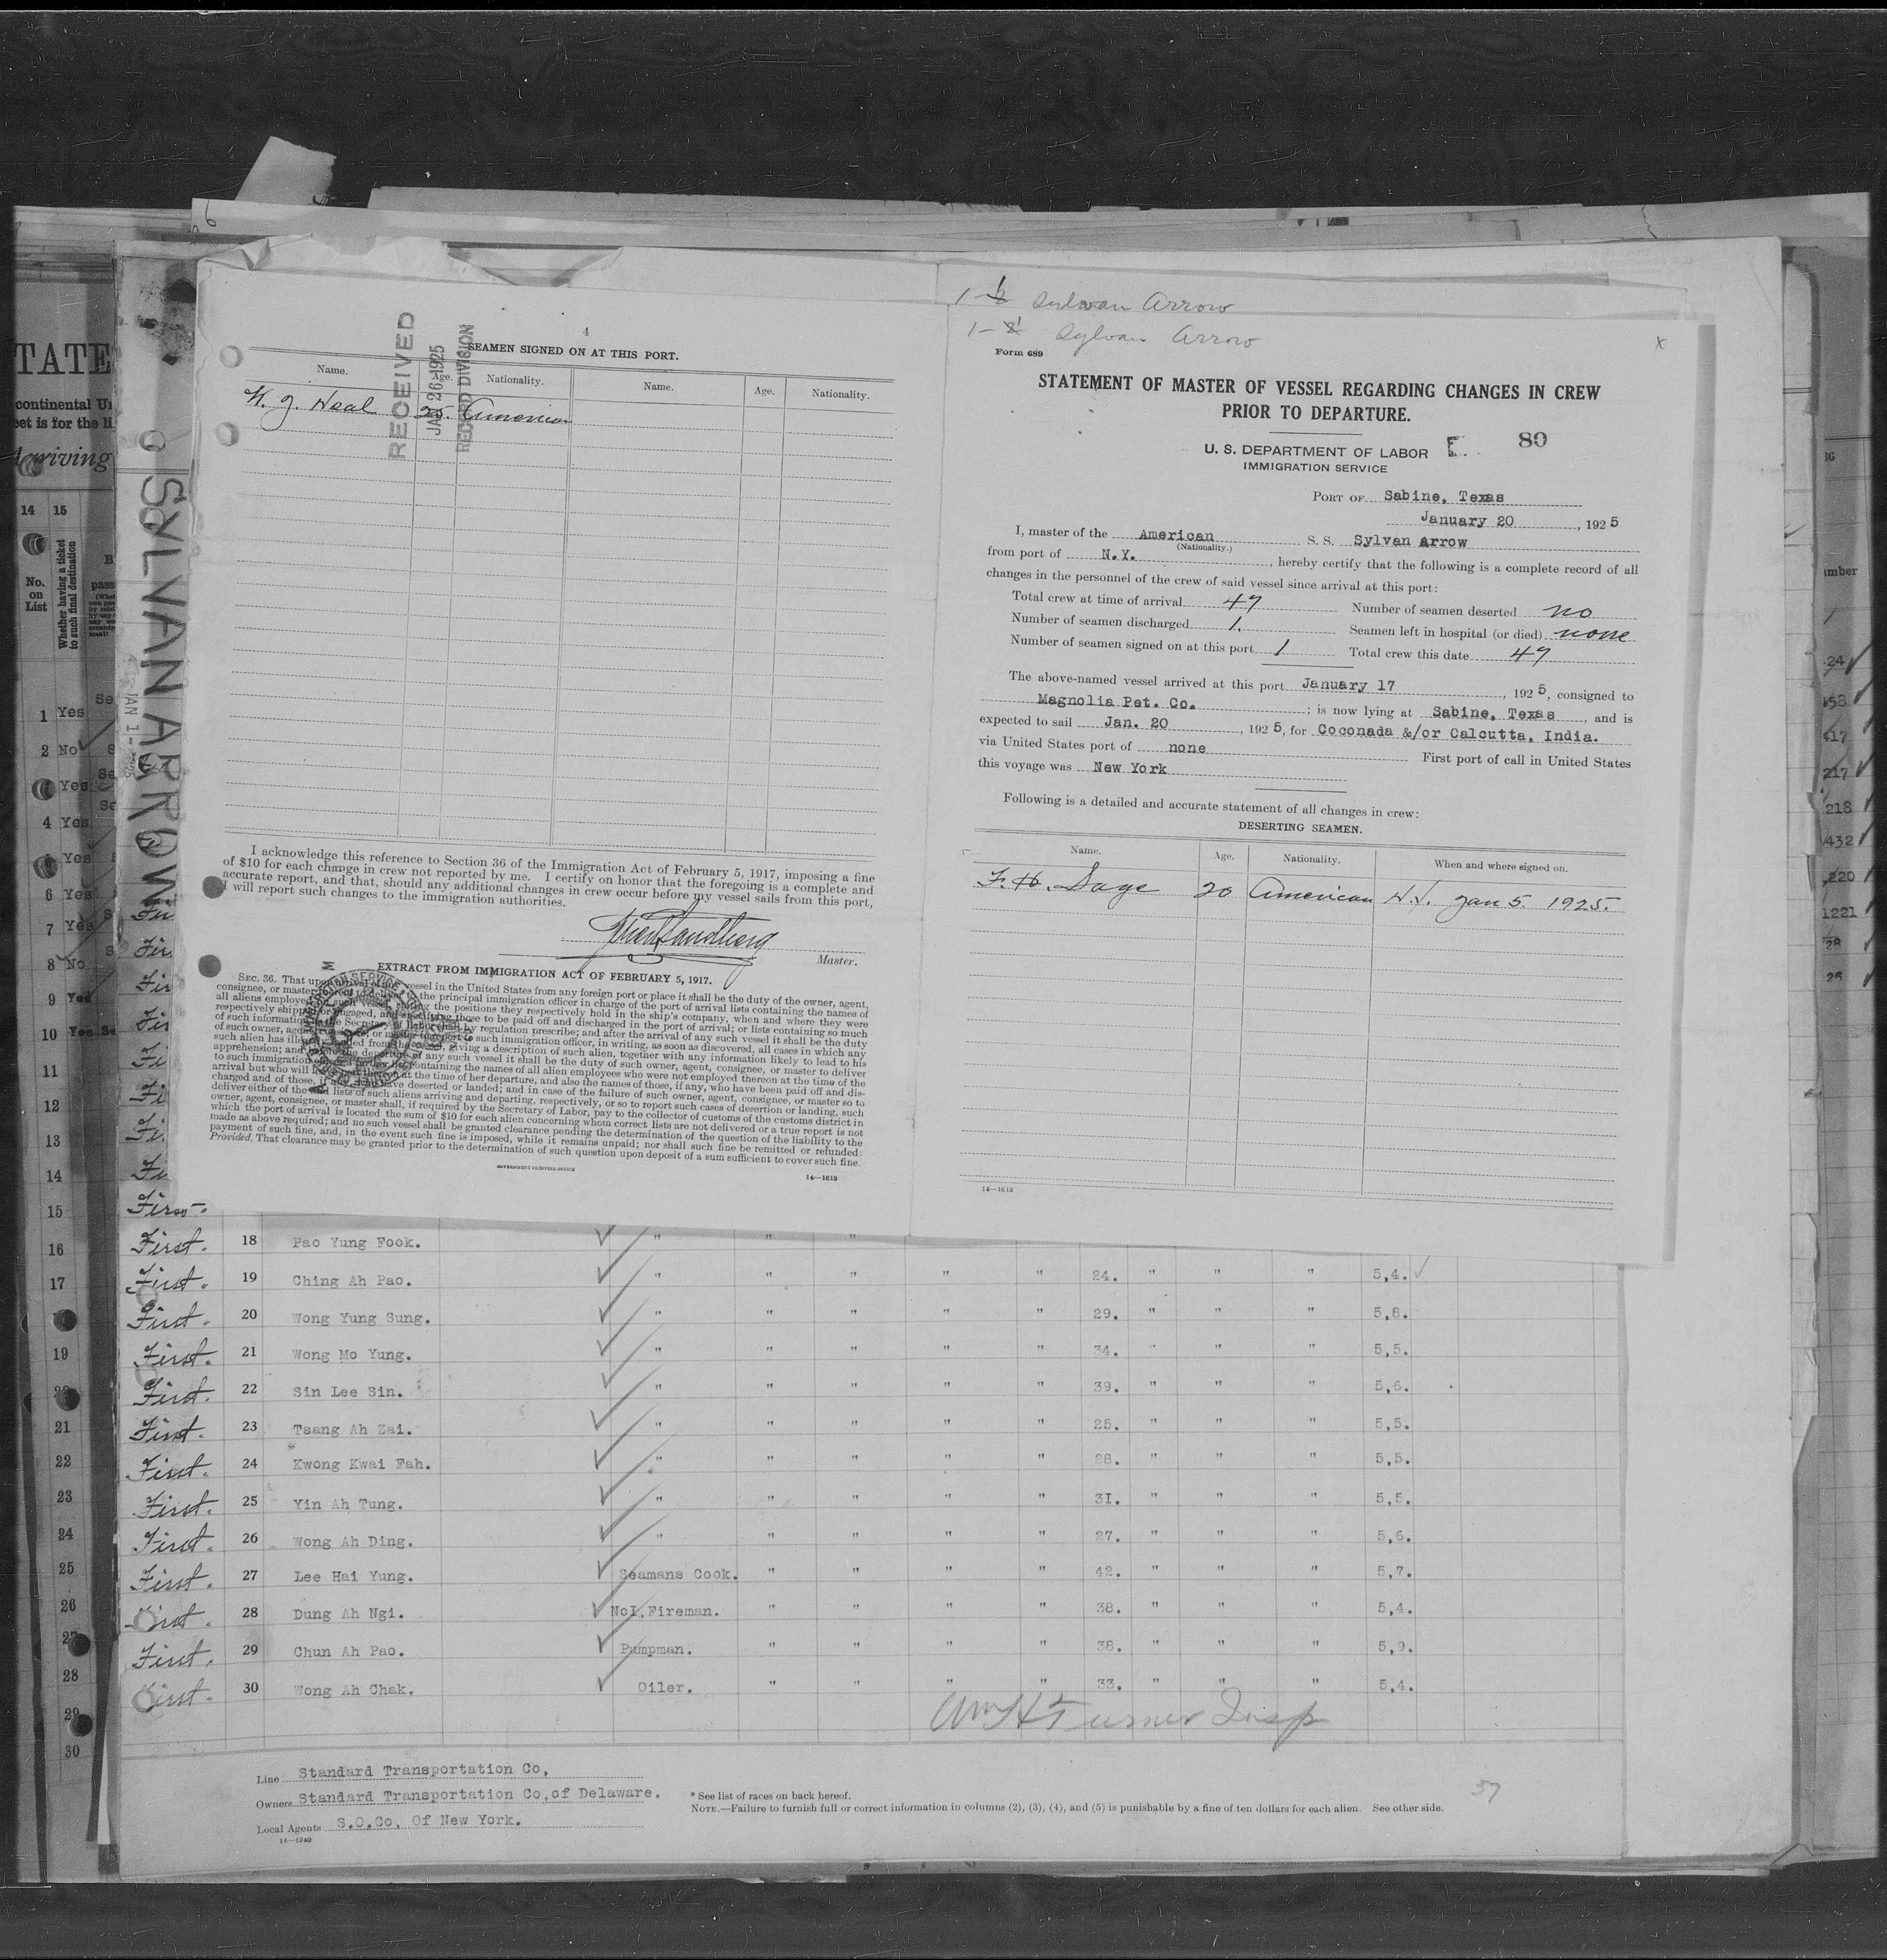 4
SEAMEN SIGNED ON AT THIS PORT.
Name. Age. Nationality. Name. Age. Nationality.
Neal 25. American
RECEIVED
JAN 26 1925
RECORD DIVISION
I acknowledge this reference to Section 36 of the Immigration Act of February 5, 1917, imposing a fine
of $10 for each change in crew not reported by me. I certify on honor that the foregoing is a complete and
accurate report, and that, should any additional changes in crew occur before my vessel sails from this port,
I will report such changes to the immigration authorities.
Master.
EXTRACT FROM IMMIGRATION ACT OF FEBRUARY 5, 1917.
SEC. 36. That upon arrival of any vessel in the United States from any foreign port or place it shall be the duty of the owner, agent,
consignee, or master thereof to deliver to the principal immigration officer in charge of the port of arrival lists containing the names of
all aliens employed on such vessel, stating the positions they respectively hold in the ship's company, when and where they were
respectively shipped or engaged, and specifying those to be paid off and discharged in the port of arrival; or lists containing so much
of such information as the Secretary of Labor shall by regulation prescribe; and after the arrival of any such vessel it shall be the duty
of such owner, agent, consignee, or master to report to such immigration officer, in writing, as soon as discovered, all cases in which any
such alien has illegally landed from the vessel, giving a description of such alien, together with any information likely to lead to his
apprehension; and before the departure of any such vessel it shall be the duty of such owner, agent, consignee, or master to deliver
to such immigration officer a further list containing the names of all alien employees who were not employed thereon at the time of the
arrival but who will leave port thereon at the time of her departure, and also the names of those, if any, who have been paid off and dis-
charged and of those, if any, who have deserted or landed; and in case of the failure of such owner, agent, consignee, or master so to
deliver either of the said lists of such aliens arriving and departing, respectively, or so to report such cases of desertion or landing, such
owner, agent, consignee, or master shall, if required by the Secretary of Labor, pay to the collector of customs of the customs district in
which the port of arrival is located the sum of $10 for each alien concerning whom correct lists are not delivered or a true report is not
made as above required; and no such vessel shall be granted clearance pending the determination of the question of the liability to the
payment of such fine, and, in the event such fine is imposed, while it remains unpaid; nor shall such fine be remitted or refunded:
Provided, That clearance may be granted prior to the determination of such question upon deposit of a sum sufficient to cover such fine.
GOVERNMENT PRINTING OFFICE
14—1613
Sylvan Arrow
Sylvan Arrow
x
Form 689
STATEMENT OF MASTER OF VESSEL REGARDING CHANGES IN CREW
PRIOR TO DEPARTURE.
U. S. DEPARTMENT OF LABOR E. 80
IMMIGRATION SERVICE
PORT OF Sabine, Texas
January 20, 1925
I, master of the American S. S. Sylvan Arrow
(Nationality.)
from port of N.Y., hereby certify that the following is a complete record of all
changes in the personnel of the crew of said vessel since arrival at this port:
Total crew at time of arrival 47 Number of seamen deserted no
Number of seamen discharged 1. Seamen left in hospital (or died) none
Number of seamen signed on at this port 1 Total crew this date 47
The above-named vessel arrived at this port January 17, 1925, consigned to
Magnolia Pet. Co.; is now lying at Sabine, Texas, and is
expected to sail Jan. 20, 1925, for Coconada &/or Calcutta, India.
via United States port of none First port of call in United States
this voyage was New York
Following is a detailed and accurate statement of all changes in crew:
DESERTING SEAMEN.
Name. Age. Nationality. When and where signed on.
F. H. Sage 20 American N.Y. Jan 5. 1925.
14—1613
SYLVAN ARROW
TATE
continental Un
eet is for the li
Arriving
14 15
No. on List
Whether having a ticket to such final destination
1 Yes
2 No
Yes
4 Yes
Yes
6 Yes
7 Yes
8 No
9 Yes
10 Yes
11
12
13
14
15
16
17
19
21
22
23
24
25
26
27
28
29
30
First. 18 Pao Yung Fook. " " "
First. 19 Ching Ah Pao. " " " " " 24. " " " 5,4.
First. 20 Wong Yung Sung. " " " " " 29. " " " 5,8.
First. 21 Wong Mo Yung. " " " " " 34. " " " 5,5.
First. 22 Sin Lee Sin. " " " " " 39. " " " 5,6.
First. 23 Tsang Ah Zai. " " " " " 25. " " " 5,5.
First. 24 Kwong Kwai Fah. " " " " " 28. " " " 5,5.
First. 25 Yin Ah Tung. " " " " " 31. " " " 5,5.
First. 26 Wong Ah Ding. " " " " " 27. " " " 5,6.
First. 27 Lee Hai Yung. Seamans Cook. " " " " 42. " " " 5,7.
First. 28 Dung Ah Ngi. No1.Fireman. " " " " 38. " " " 5,4.
First. 29 Chun Ah Pao. Pumpman. " " " " 38. " " " 5,9.
First. 30 Wong Ah Chak. Oiler. " " " " 33. " " " 5,4.
Wm H Turner Insp
Line Standard Transportation Co,
Owners Standard Transportation Co,of Delaware.
Local Agents S.O.Co. Of New York.
14—1240
* See list of races on back hereof.
NOTE.—Failure to furnish full or correct information in columns (2), (3), (4), and (5) is punishable by a fine of ten dollars for each alien. See other side.
57